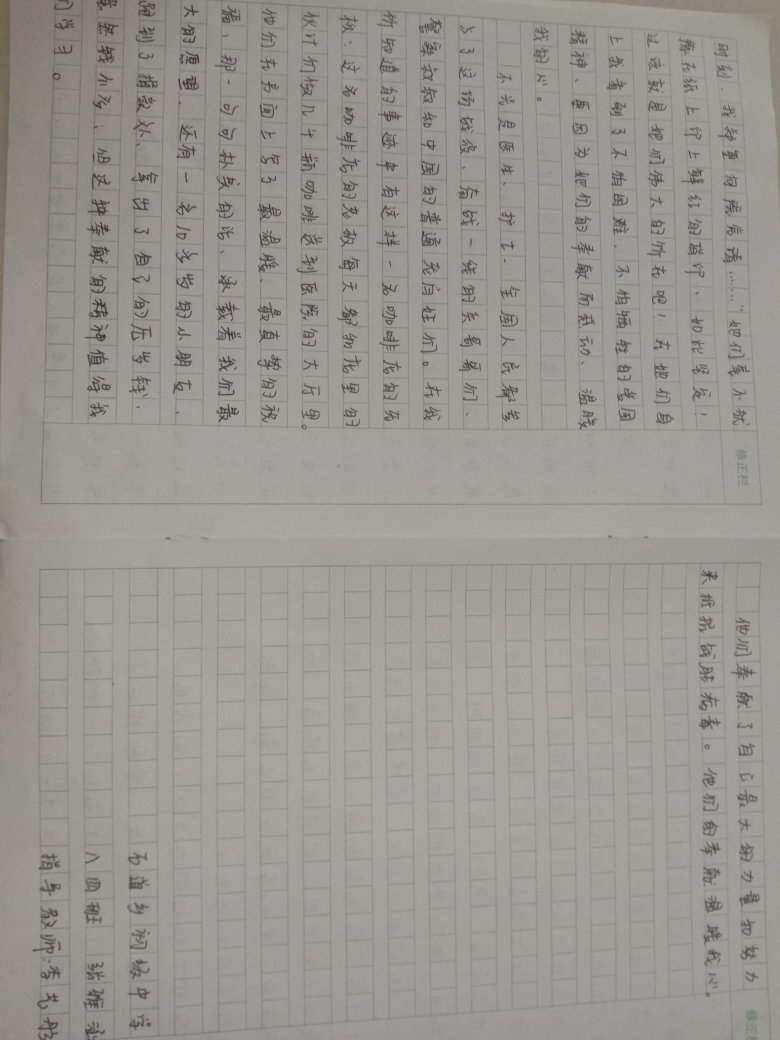 时刻，我郑重向院宣请……“她们毫不犹
豫在纸上印上鲜红的指印、如此坚定！
这该就是她们伟大的所在吧！在她们身
上我看到了不怕困难、不怕牺牲的爱国
精神、更因为她们的奉献而感动、温暖
我的心。
不光是医生、护士、全国人民都参
与了这场战役、奋战一线的兵哥哥们、
警察叔叔和中国的普通老百姓们。在我
所知道的事迹中有这样一名咖啡店的老
板：这名咖啡店的老板每天都给店里的
伙计们做几千瓶咖啡送到医院的大厅里。
他们在书面上写了最温暖、最真挚的祝
福、那一句句朴实的话、承载着我们最
大的愿望、还有一名10多岁的小朋友、
跑到了捐款处、拿出了自己的压岁钱，
虽然钱不多、但这种奉献的精神值得我
们学习。
修正栏
他们奉献了自己最大的力量和努力
来抵抗战胜病毒。他们的奉献温暖我心。
石道乡初级中学
八四班 张雅
指导教师：李
修正